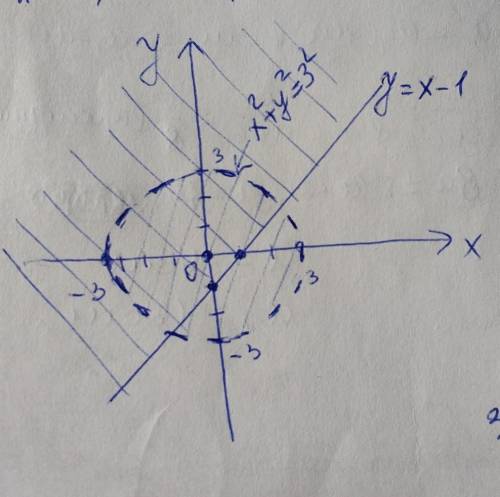 y
x²+y²=3²
y=x-1
3
x
0
-3
3
-3